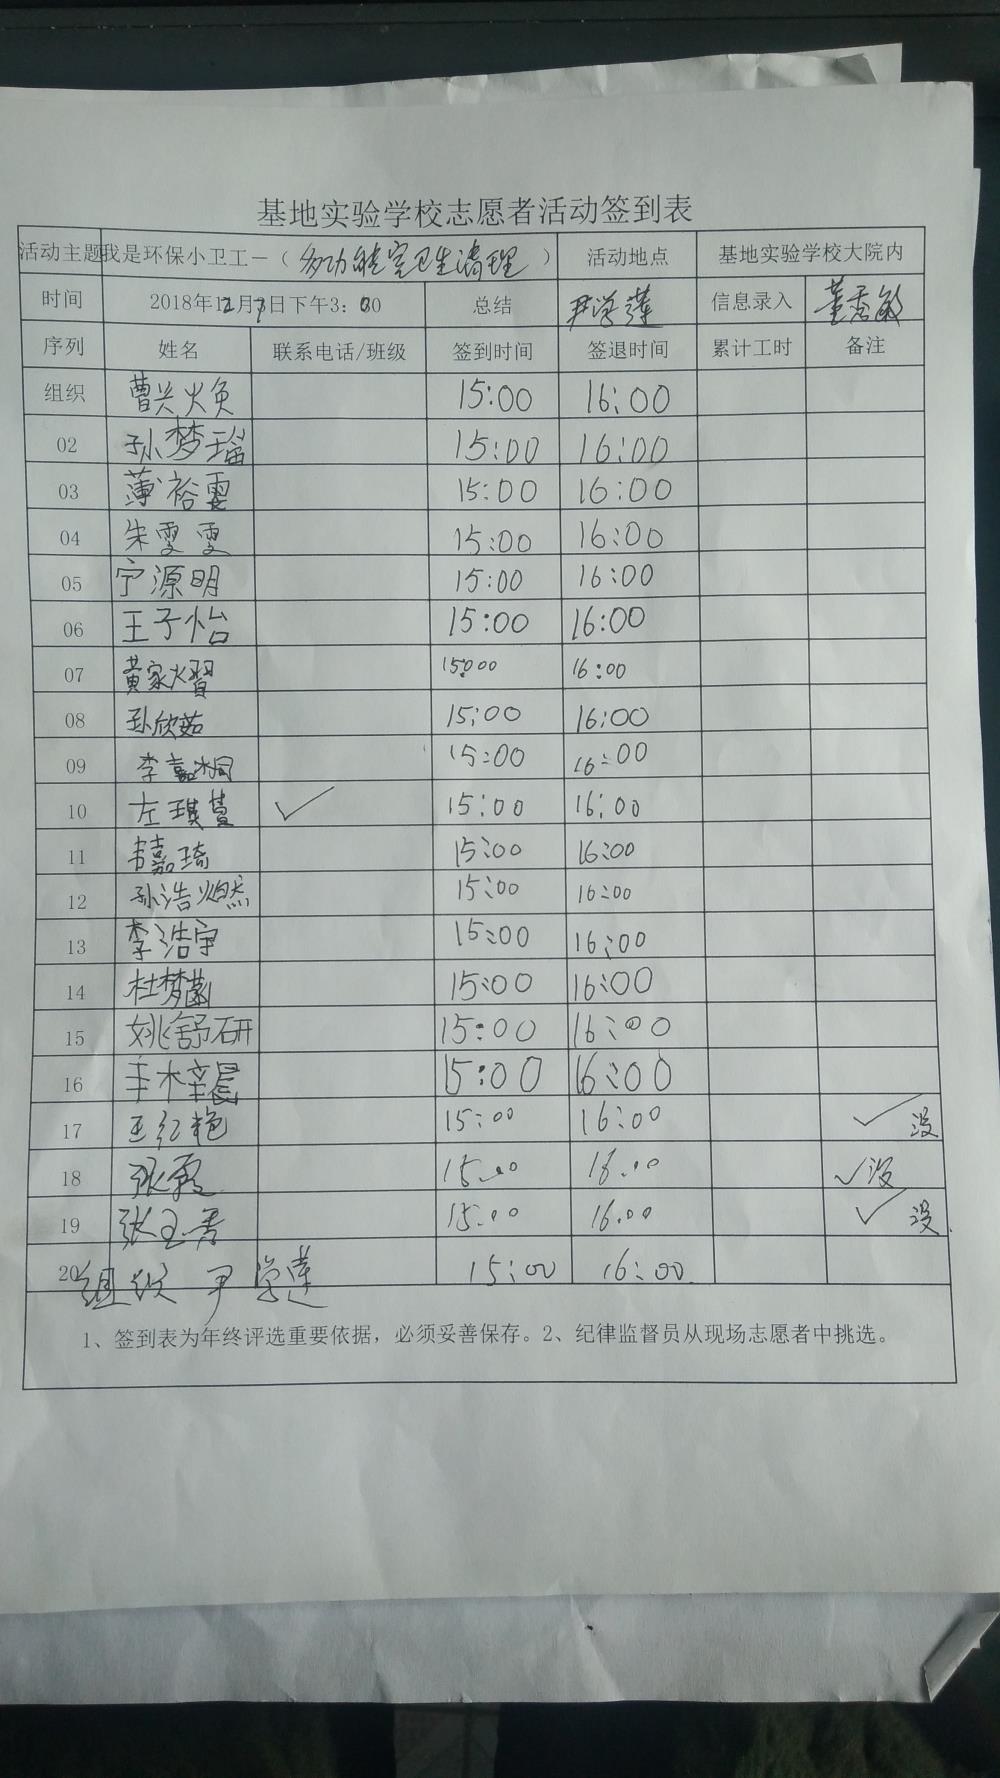 基地实验学校志愿者活动签到表
活动主题 我是环保小卫工—（多功能室卫生清理） 活动地点 基地实验学校大院内
时间 2018年12月7日下午3：00 总结 尹学莲 信息录入 董秀敏
序列 姓名 联系电话/班级 签到时间 签退时间 累计工时 备注
组织 曹兴焕 15:00 16:00
02 孙梦瑶 15:00 16:00
03 薄裕雯 15:00 16:00
04 朱雯雯 15:00 16:00
05 宁源明 15:00 16:00
06 王子怡 15:00 16:00
07 黄家熠 15:00 16:00
08 孙欣茹 15:00 16:00
09 李嘉桐 15:00 16:00
10 左琪萱 ✓ 15:00 16:00
11 韦嘉琦 15:00 16:00
12 孙浩燃 15:00 16:00
13 李浩宇 15:00 16:00
14 杜梦 15:00 16:00
15 姚舒研 15:00 16:00
16 15:00 16:00
17 王红艳 15:00 16:00 ✓ 没
18 张霞 15:00 16:00 ✓ 没
19 张玉秀 15:00 16:00 ✓ 没
20 组织 尹学莲 15:00 16:00
1、签到表为年终评选重要依据，必须妥善保存。2、纪律监督员从现场志愿者中挑选。